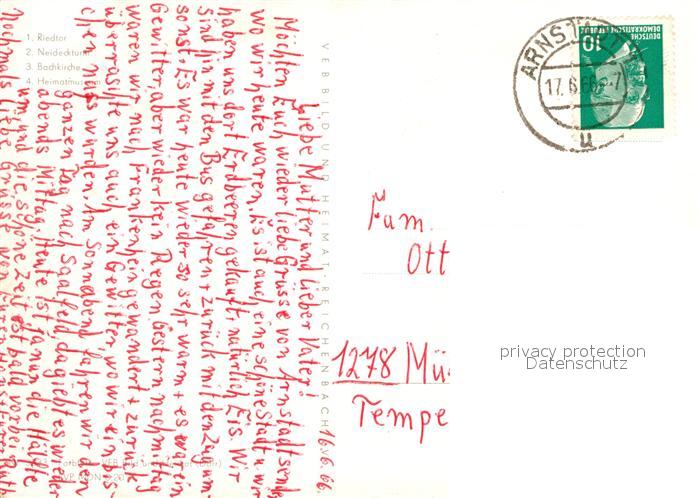 1. Riedtor
2. Neideckturm
3. Bachkirche
4. Heimatmuseum
VEB BILD UND HEIMAT · REICHENBACH
16.VI.66.
Liebe Mutter und lieber Vater!
Möchten Euch wieder liebe Grüsse von Arnstadt senden
wo wir heute waren. Es ist auch eine schöne Stadt u. wir
haben uns dort Erdbeeren gekauft, natürlich Eis. Wir
sind hin mit den Bus gefahren + zurück mit den Zug um
sonst. Es war heute wieder so sehr warm + es war ein
Gewitter, aber wieder kein Regen. Gestern nachmittag
waren wir nach Frankenhein gewandert + zurück
überraschte uns auch ein Gewitter wo wir ein bis-
chen nass wurden. Am Sonnabend fahren wir den
ganzen Tag nach Saalfeld, da giebt es wieder
abends Mittag. Heute ist ja nun die Hälfte
um und die schöne Zeit ist bald vorbei.
Nochmals liebe Grüsse von
ARNSTADT
17.6.66
u
DEUTSCHE
DEMOKRATISCHE REPUBLIK
10
Fam.
Ott
1278 Mü
Tempe
privacy protection
Datenschutz